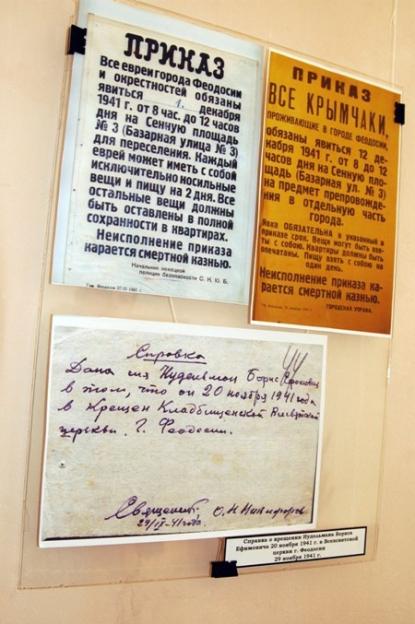 ПРИКАЗ
Все евреи города Феодосии
и окрестностей обязаны
явиться 1. декабря
1941 г. от 8 час. до 12 часов
дня на Сенную площадь
№ 3 (Базарная улица № 3)
для переселения. Каждый
еврей может иметь с собой
исключительно носильные
вещи и пищу на 2 дня. Все
остальные вещи должны
быть оставлены в полной
сохранности в квартирах.
Неисполнение приказа
карается смертной казнью.
Начальник немецкой
полиции безопасности
ПРИКАЗ
ВСЕ КРЫМЧАКИ,
ПРОЖИВАЮЩИЕ В ГОРОДЕ ФЕОДОСИИ,
обязаны явиться 12 де-
кабря 1941 г. от 8 до 12
часов дня на Сенную пло-
щадь (Базарная ул. № 3)
на предмет препровожде-
ния в отдельную часть
города.
Явка ОБЯЗАТЕЛЬНА в указанный в
приказе срок. Вещи могут быть взя-
ты с собою. Квартиры должны быть
опечатаны. Пищу взять с собою на
один день.
Неисполнение приказа ка-
рается смертной казнью.
ГОРОДСКАЯ УПРАВА.
Справка
Дана сия Нудельман Борис
в том, что он 20 ноября 1941 года
в Крещен Кладбищенской Всесвятской
церкви г. Феодосии.
Священик
Справка о крещении Нудельмана Бориса
Ефимовича 20 ноября 1941 г. в Всехсвятской
церкви г. Феодосии
29 ноября 1941 г.